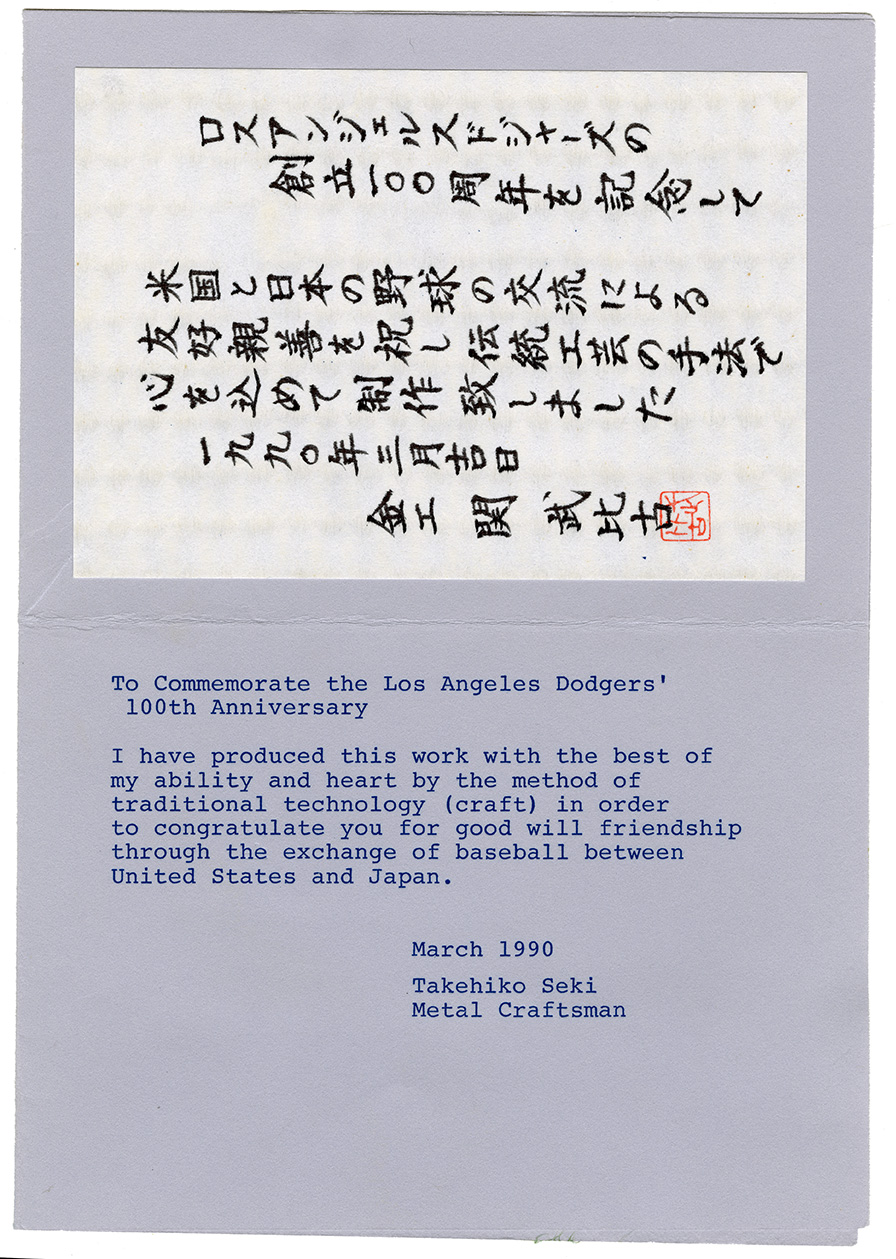 ロスアンジェルスドジャーズの
創立一〇〇周年を記念して
米国と日本の野球の交流による
友好親善を祝し伝統工芸の手法で
心を込めて制作致しました
一九九〇年三月吉日
金工 関 武比古
To Commemorate the Los Angeles Dodgers'
100th Anniversary
I have produced this work with the best of
my ability and heart by the method of
traditional technology (craft) in order
to congratulate you for good will friendship
through the exchange of baseball between
United States and Japan.
March 1990
Takehiko Seki
Metal Craftsman